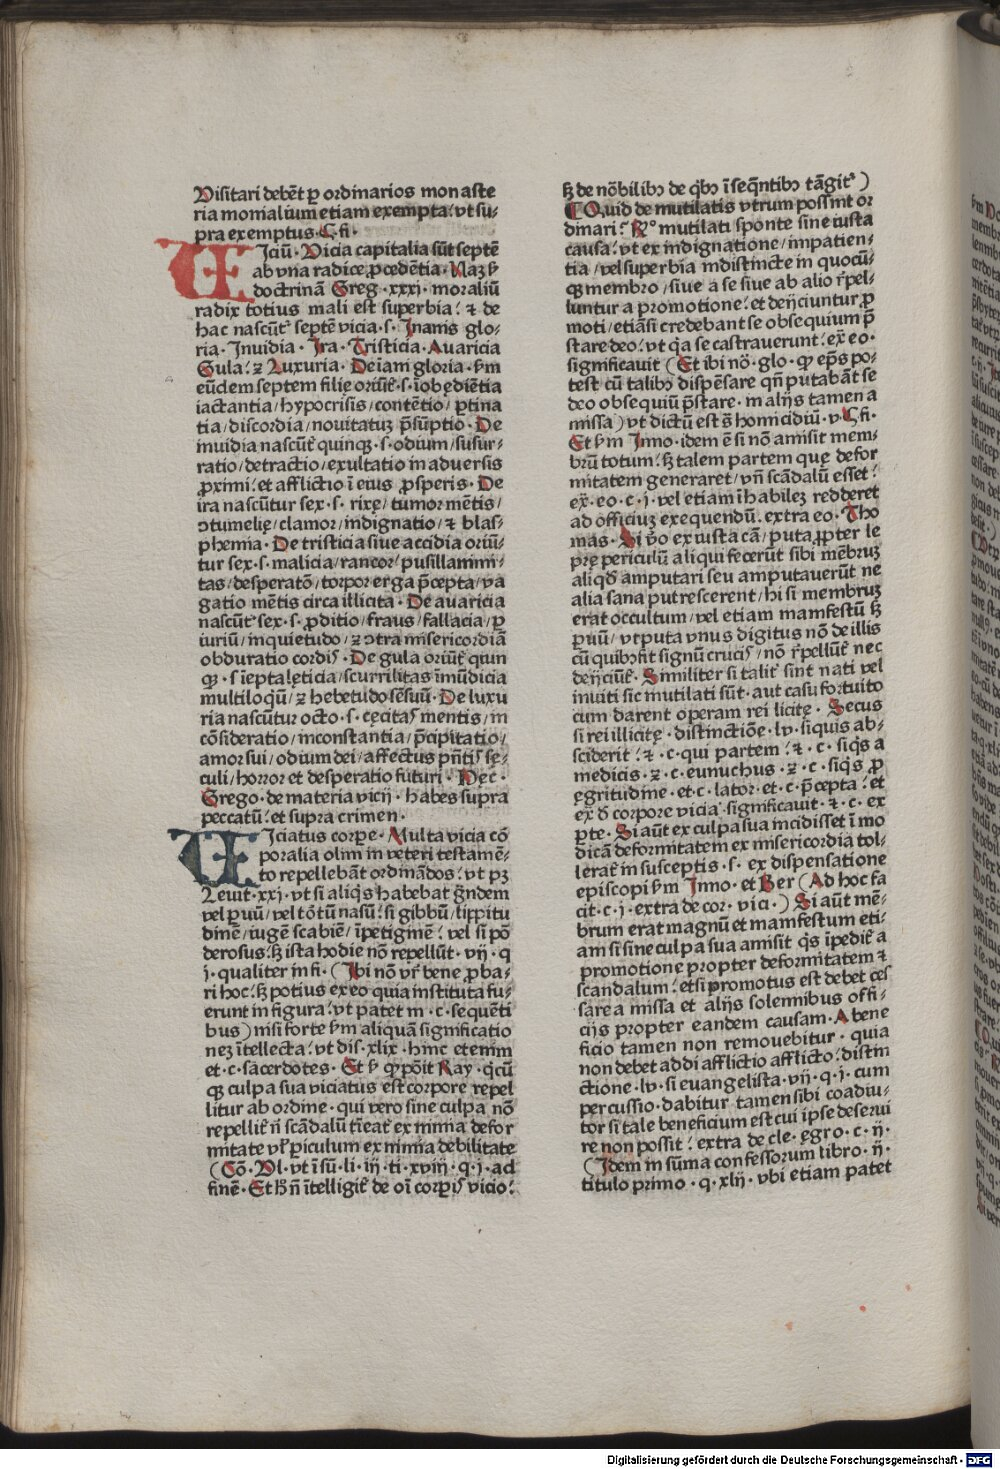 Visitari debēt ꝑ ordinarios monaste
ria monialium etiam exempta. vt su-
pra exemptus. §. fi.
VIciū. Vicia capitalia sūt septē
ab vna radice ꝓcedētia. Naꝫ ẜm
doctrinā Greg. xxxi. moraliū
radix totius mali est superbia. ⁊ de
hac nascūtᷣ septē vicia. s. Inanis glo-
ria. Inuidia. Ira. Tristicia. Auaricia
Gula. ⁊ Luxuria. De inani gloria. ẜm
eūdem septem filie oriūtᷣ. s. īobediētia
iactantia/hypocrisis/contētio/ ꝑtina
tia/discordia/nouitatuꝫ p̄sūptio. De
inuidia nascūtᷣ quinqꝫ. s. odium/susur-
ratio/detractio/exultatio in aduersis
ꝓximi. et afflictio ī eius ꝓsperis. De
ira nascūtur sex. s. rixę/tumor mētis/
ↄtumelię/clamor/indignatio/⁊ blas-
phemia. De tristicia siue accidia oriū-
tur sex. s. malicia/rancor/pusillanimi-
tas/desperatō/torpor erga p̄cepta/va
gatio mētis circa illicita. De auaricia
nascūtᷣ sex. s. ꝓditio/fraus/fallacia/ꝑ
iuriū/inquietudo/⁊ ↄtra misericordiā
obduratio cordis. De gula oriūtᷣ quin
qꝫ. s. īepta leticia/scurrilitas īmūdicia
multiloq̄ū/⁊ hebetudo sēsuū. De luxu
ria nascūtur octo. s. cęcitas mentis/in
cōsideratio/inconstantia/p̄cipitatio/
amor sui/odium dei/affectus p̄ntis sę-
culi/horror et desperatio futuri. Hec.
Grego. de materia vicij. habes supra
peccatū. et supra crimen.
VIciatus corpe. Multa vicia cō
poralia olim in veteri testamē-
to repellebāt ordinādos. vt pꝫ
Leuit. xxj. vt si aliq̄s habebat g̃ndem
vel ꝑuū/vel tōtū nasū. si gibbū/lippitu
dinē/iugē scabiē/īpetiginē. vel si pō
derosus. sꝫ ista hodie nō repellūt. vij. q
i. qualiter in fi. (Ibi nō vr̄ bene ꝓba-
ri hoc. sꝫ potius ex eo quia instituta fu-
erunt in figura. vt patet in. c. sequēti
bus) nisi forte ẜm aliquā significatio
neꝫ ītellecta. vt dis. xlix. hinc etenim
et. c. sacerdotes. Et ẜ qꝫ pōit Ray. q̇cū
qꝫ culpa sua viciatus est corpore repel
litur ab ordine. qui vero sine culpa nō
repellitᷣ n̄ scādalū tīeatᷣ ex nimia defor
mitate vel ꝑiculum ex nimia debilitate
(Cō. Vl. vt ī sū. li. iij. ti. xviij. q. j. ad
finē. Et h̄ n̄ ītelligitᷣ de oī corꝑis vicio.
sꝫ de nōbilibꝰ de q̇bꝰ ī seq̄ntibꝰ tāgitᷣ)
¶ Quid de mutilatis vtrum possint or
dinari. Rº mutilati sponte sine iusta
causa. vt ex indignatione/impatien-
tia/vel superbia indistincte in quocū-
qꝫ membro/siue a se siue ab alio r̄pel-
luntur a promotione. et deijciuntur ꝓ
moti/etiāsi credebant se obsequium p̄
stare deo. vt q̇a se castrauerunt. ex̄ eo.
significauit (Et ibi nō. glo. qꝫ ep̄s po-
test cū talibꝰ dispēsare qn̄ putabāt se
deo obsequiū p̄stare. in alijs tamen a
missa) vt dictū est s̄ homicidiū. v. §. fi.
Et ẜm Inno. idem ē si nō amisit mem-
brū totum. sꝫ talem partem quę defor
mitatem generaret/vn̄ scādalū esset.
ex̄. eo. c. i. vel etiam īhabileꝫ redderet
ad officiuꝫ exequendū. extra eo. Tho
mas. Si v̊o ex iusta cā/puta ꝓpter le
prę periculū aliqui fecerūt sibi mēbruꝫ
aliqd̄ amputari seu amputauerūt ne
alia sana putrescerent/hi si membruꝫ
erat occultum/vel etiam manifestū sꝫ
ꝑuū/vtputa vnus digitus nō de illis
cū quibꝰ fit signū crucis/nō r̄pellūtᷣ nec
deijciūtᷣ. Similiter si talitᷣ sint nati vel
inuiti sic mutilati sūt. aut casu fortuito
cum darent operam rei licitę. Secus
si rei illicitę. distinctiōe. lv. si quis ab-
sciderit. ⁊. c. qui partem. ⁊. c. siq̇s a
medicis. ⁊. c. eunuchus. ⁊. c. siq̇s ꝓ
ęgritudine. et. c. lator. et. c. p̄cepta. et
ex̄ d̄ corpore vicia. significauit. ⁊. c. ex
ꝑte. Si aūt ex culpa sua incidisset ī mo
dicā deformitatem ex misericordia tol-
leratᷣ in susceptis. s. ex dispensatione
episcopi ẜm Inno. et Ber (Ad hoc fa
cit. c. j. extra de cor. vici.) Si aūt mē-
brum erat magnū et manifestum eti-
am si sine culpa sua amisit q̇s īpeditᷣ a
promotione propter deformitatem ⁊
scandalum. et si promotus est debet ces
sare a missa et alijs solennibus offi-
cijs propter eandem causam. A bene
ficio tamen non remouebitur. quia
non debet addi afflictio afflicto. distin
ctione. lv. si euangelista. vij. q. j. cum
percussio. dabitur tamen sibi coadiu-
tor si tale beneficium est cui ipse deserui
re non possit. extra de cle. ęgro. c. ij.
(Idem in sūma confessorum libro. ij.
titulo primo. q. xlij. vbi etiam patet
Digitalisierung gefördert durch die Deutsche Forschungsgemeinschaft - DFG